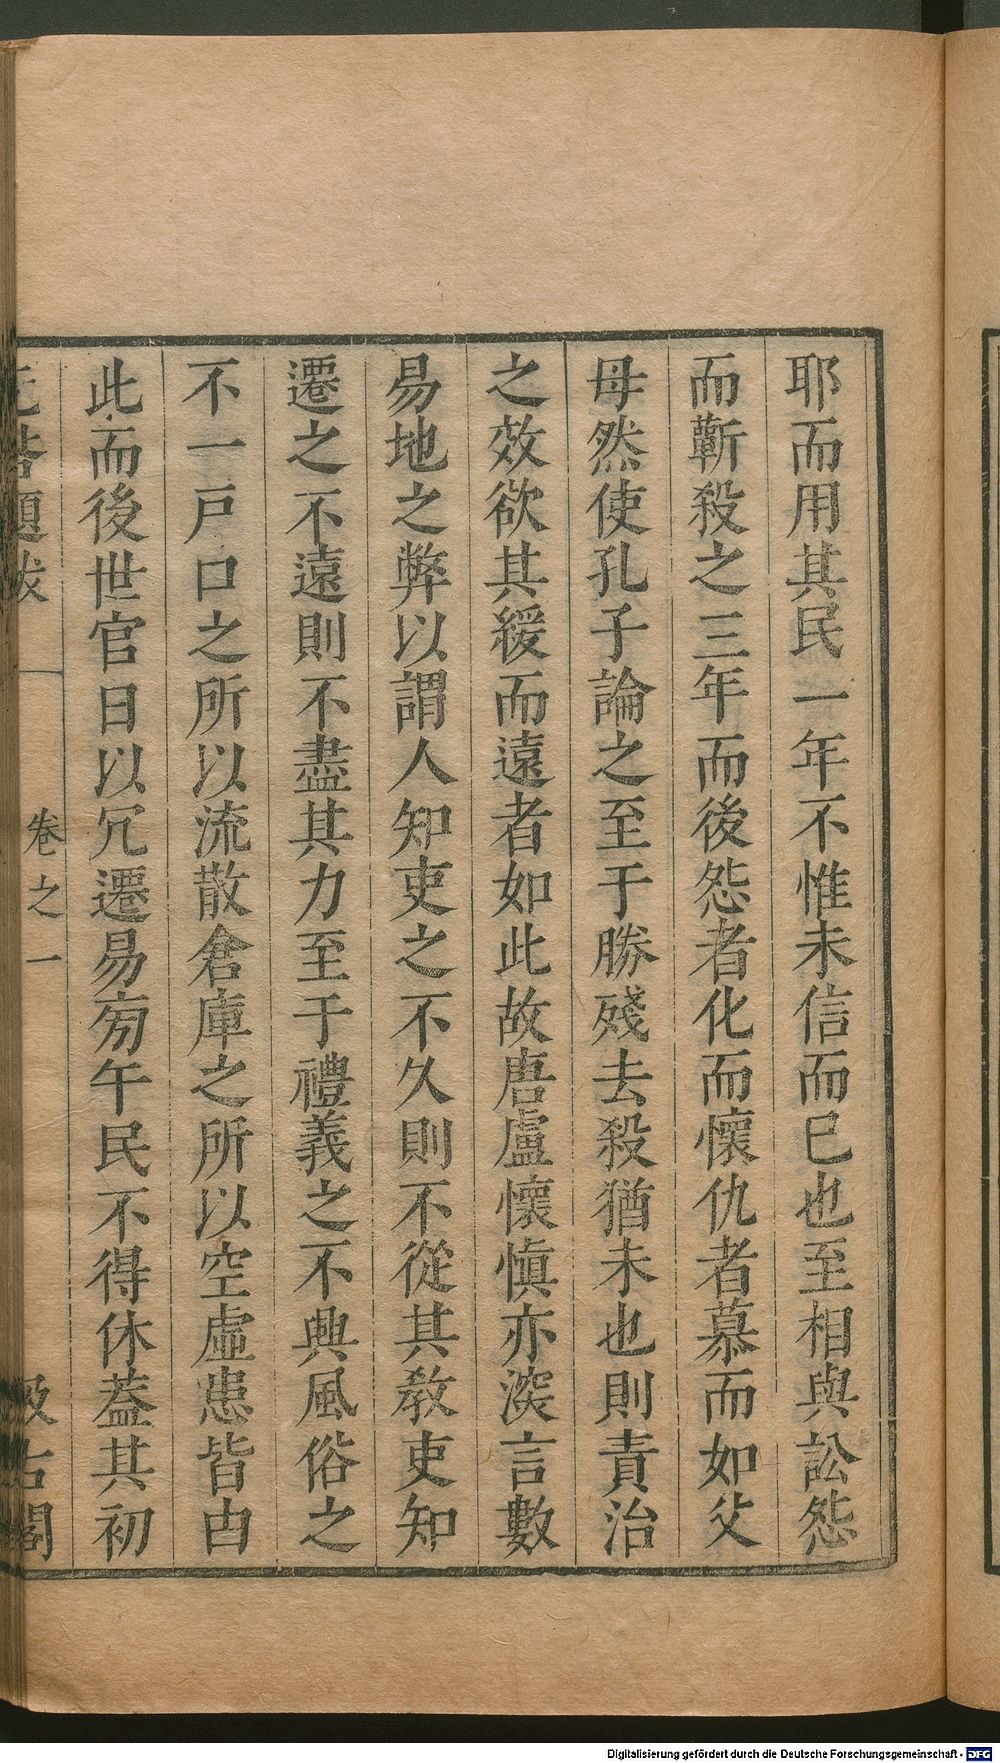 耶而用其民一年不惟未信而已也至相與訟怨
而蘄殺之三年而後怨者化而懷仇者慕而如父
母然使孔子論之至于勝殘去殺猶未也則責治
之效欲其緩而遠者如此故唐盧懷愼亦深言數
易地之弊以謂人知吏之不久則不從其敎吏知
遷之不遠則不盡其力至于禮義之不興風俗之
不一戸口之所以流散倉庫之所以空虛患皆由
此而後世官日以冗遷易旁午民不得休蓋其初
題跋 卷之一 汲古閣
Digitalisierung gefördert durch die Deutsche Forschungsgemeinschaft - DFG